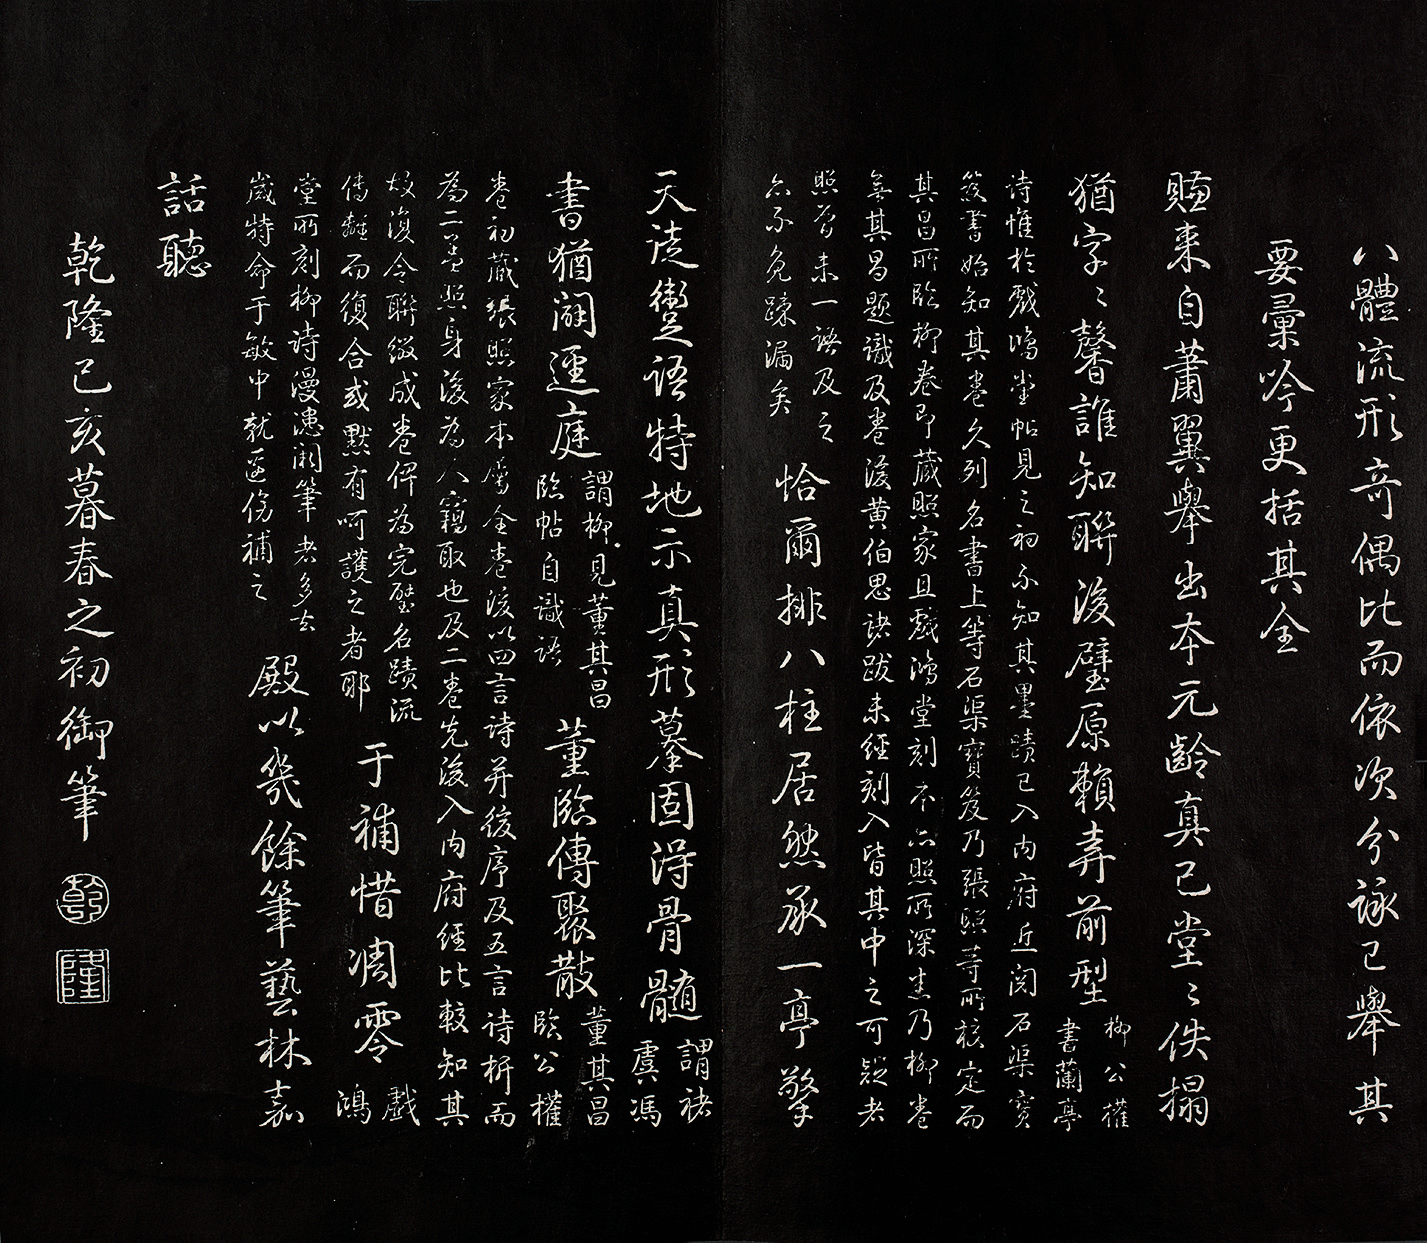 八體流形奇偶比而依次分詠已舉其
要彙吟更括其全
賺來自蕭翼舉出本元齡真已堂〻佚搨
猶字〻馨誰知聯後璧原賴弆前型
柳公權
書蘭亭
詩惟於戲鴻堂帖見之初不知其墨蹟已入內府近閱石渠寶
笈書始知其卷久列名書上等石渠寶笈乃張照等所校定而
其昌所臨柳卷即藏照家且戲鴻堂刻本亦照所深悉乃柳卷
無其昌題識及卷後黃伯思諸跋未經刻入皆其中之可疑者
照曾未一語及之
亦不免疎漏矣
恰爾排八柱居然承一亭擎
天徒躗語特地示真形摹固得骨髓
謂褚
虞馮
書猶闢逕庭
謂柳見董其昌
臨帖自識語
董臨傳聚散
董其昌
臨公權
卷初藏張照家本屬全卷後以四言詩并後序及五言詩析而
為二蓋照身後為人竊取也及二卷先後入內府經比較知其
故復令聯綴成卷俾為完璧名蹟流
傳離而復合或默有呵護之者耶
于補惜凋零
戲
鴻
堂所刻柳詩漫漶闕筆者多去
歲特命于敏中就邊傍補之
殿以幾餘筆藝林嘉
話聽
乾隆己亥暮春之初御筆
乾
隆